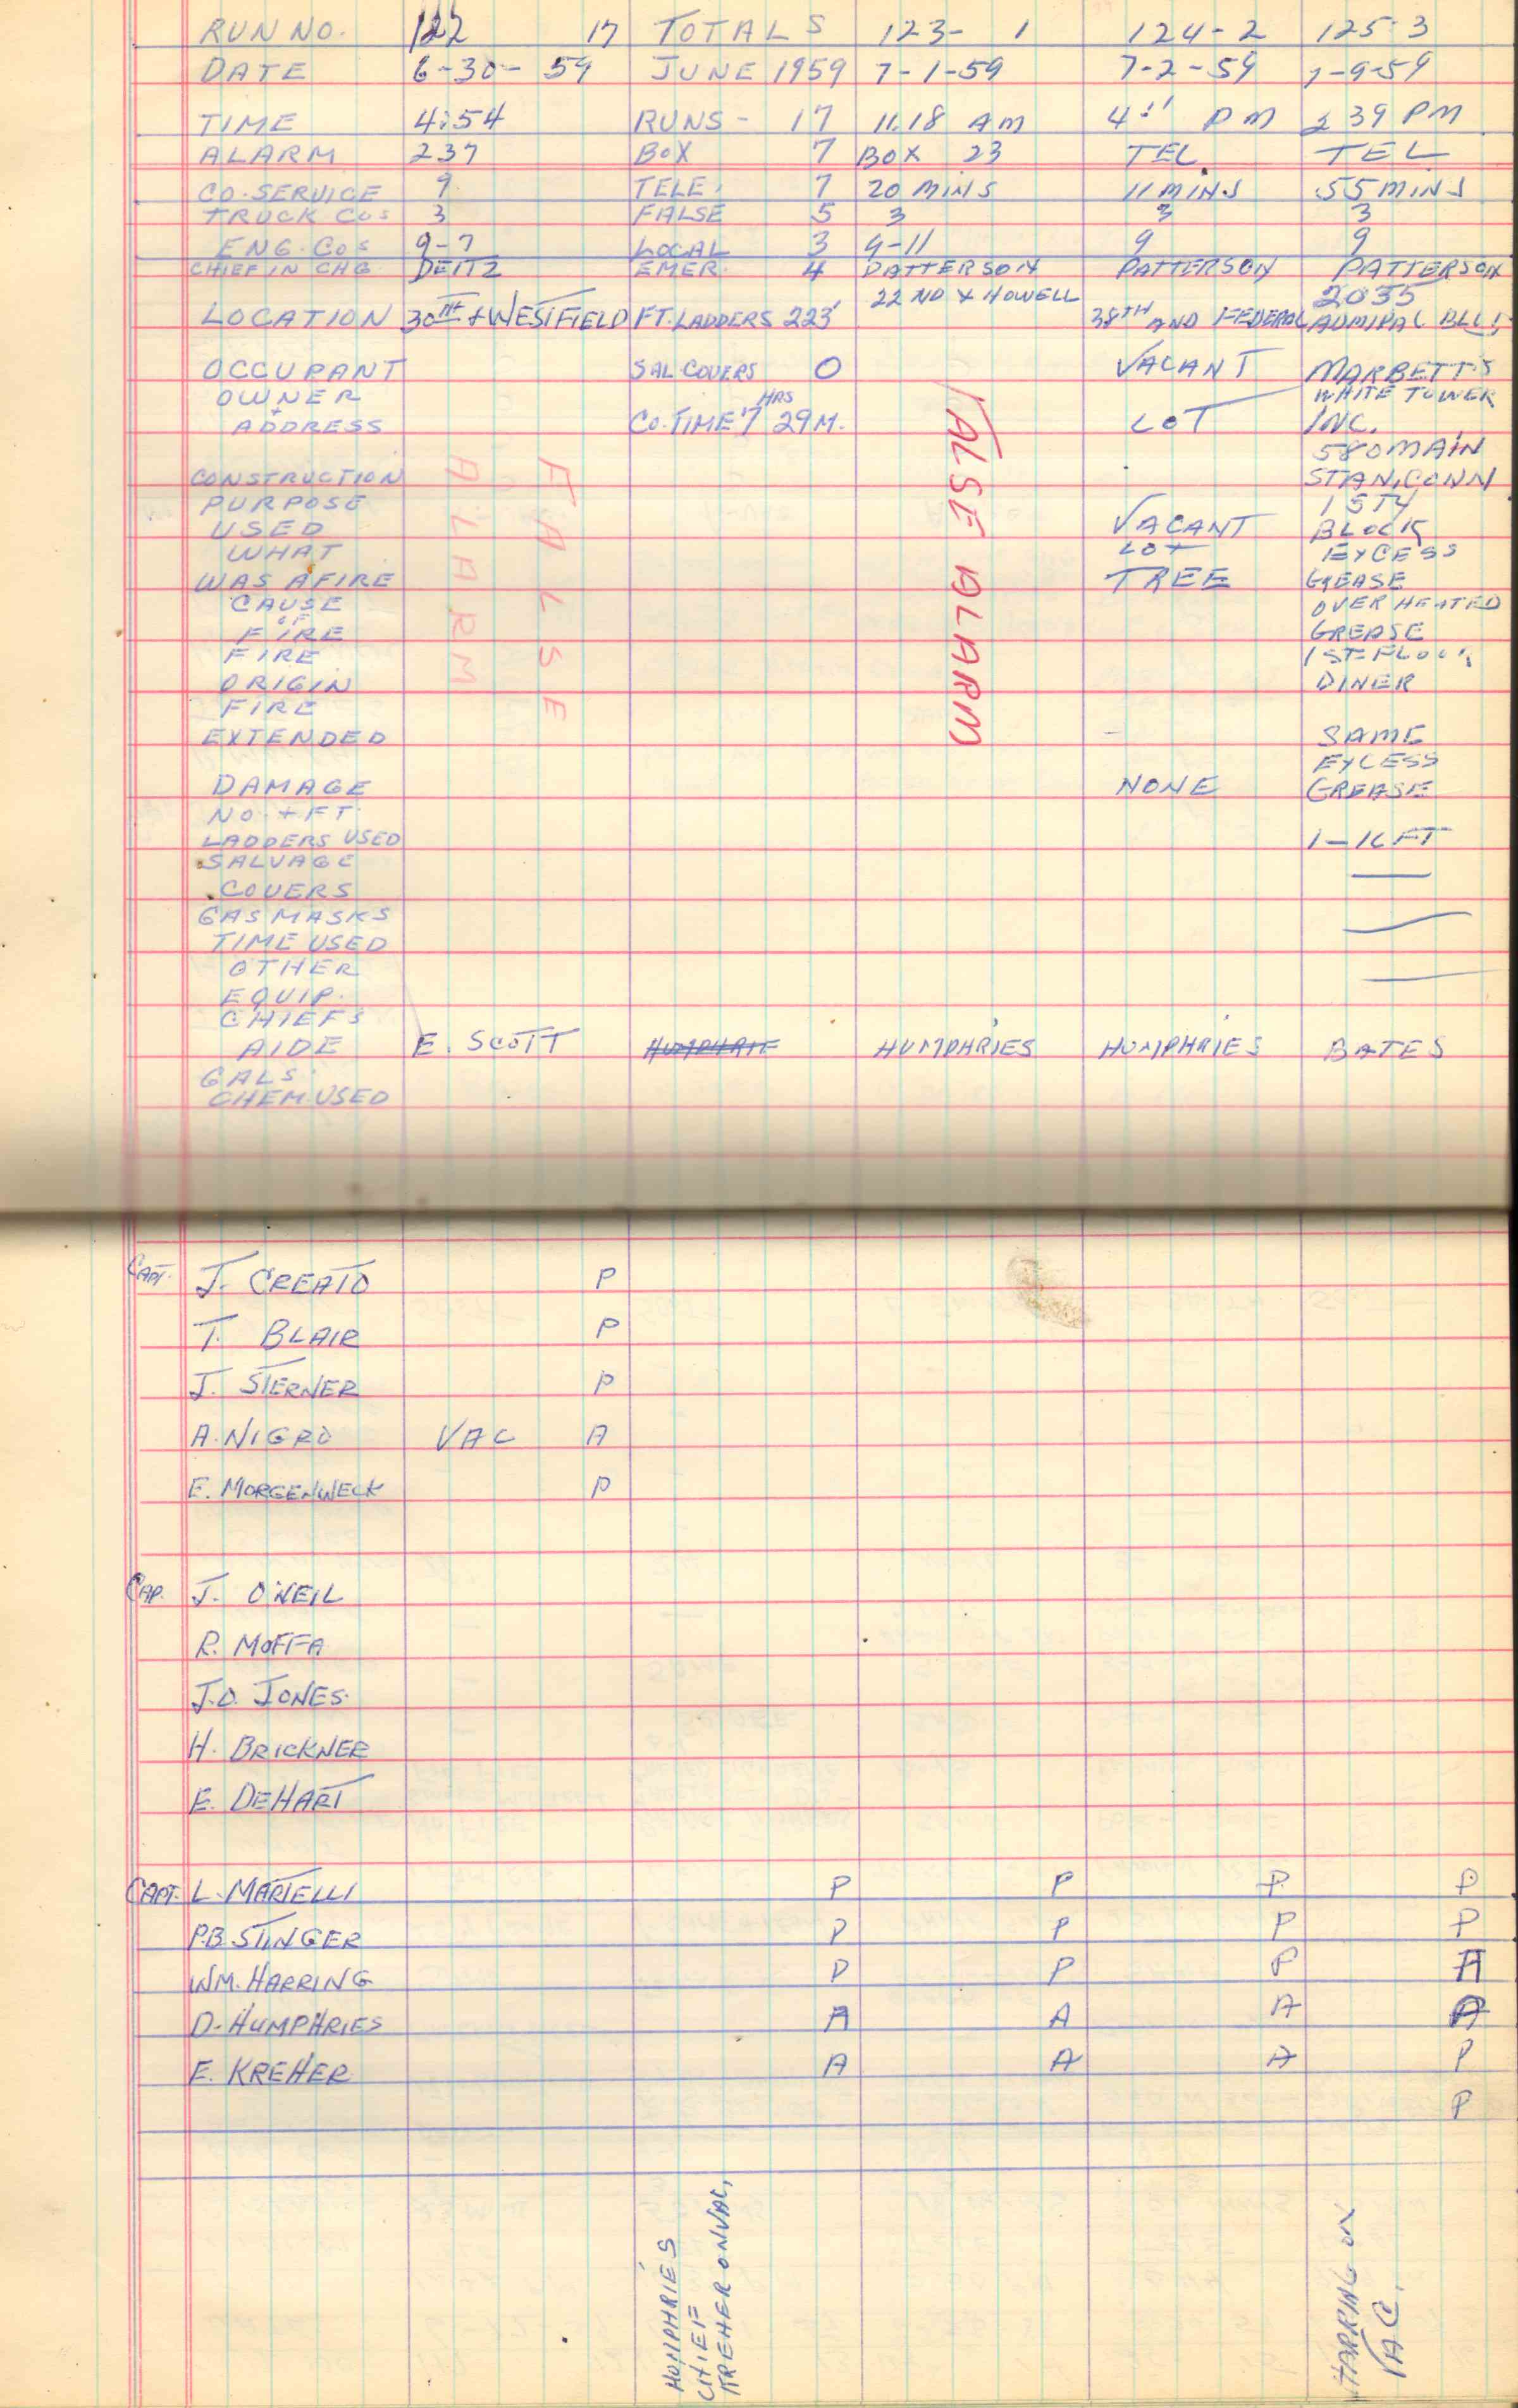 RUN NO. 122 17 TOTALS 123- 1 124-2 125-3
DATE 6-30-59 JUNE 1959 7-1-59 7-2-59 7-9-59
TIME 4:54 RUNS- 17 11.18 AM 4 11 PM 2 39 PM
ALARM 237 BOX 7 BOX 23 TEL. TEL
CO. SERVICE 9 TELE. 7 20 MINS 11 MINS 55 MINS
TRUCK COS 3 FALSE 5 3 3 3
ENG. COS 9-7 LOCAL 3 9-11 9 9
CHIEF IN CHG. DEITZ EMER. 4 PATTERSON PATTERSON PATTERSON
22 ND & HOWELL 2035
LOCATION 30TH + WESTFIELD FT. LADDERS 223' 38TH AND FEDERAL ADMIRAL
OCCUPANT SAL COVERS 0 VACANT MARBETT'S
OWNER HRS WHITE TOWER
+
ADDRESS CO. TIME 7 29 M. LOT INC.
580 MAIN
CONSTRUCTION STAN, CONN
PURPOSE 1 STY
USED VACANT BLOCK
WHAT LOT EXCESS
WAS AFIRE TREE GREASE
CAUSE OVER HEATED
OF
FIRE GREASE
FIRE 1ST FLOOR
ORIGIN DINER
FIRE
EXTENDED - SAME
EXCESS
DAMAGE NONE GREASE
NO. + FT.
LADDERS USED 1-16 FT
SALVAGE
COVERS —
GAS MASKS
TIME USED —
OTHER
EQUIP. —
CHIEFS
AIDE E. SCOTT HUMPHRIE HUMPHRIES HUMPHRIES BATES
GALS.
CHEM. USED
FALSE
ALARM
FALSE ALARM
CAPT. J. CREATO P
T. BLAIR P
J. STERNER P
A. NIGRO VAC A
E. MORGENWECK P
CAP. J. O'NEIL
R. MOFFA
J.D. JONES.
H. BRICKNER
E. DEHART
CAPT. L. MARTELLI P P P P
P.B. STINGER P P P P
WM. HARRING P P P A
D. HUMPHRIES A A A A
E. KREHER A A A P
P
HUMPHRIES
CHIEF
KREHER ON VAC,
HARRING ON
VAC.